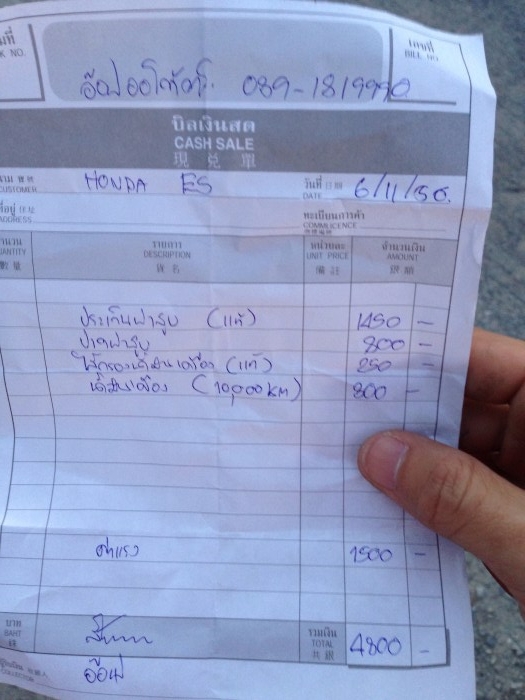 มที่ เลขที่
K NO. BILL NO
อ๊อฟออโต้คาร์. 089-1819990
บิลเงินสด
CASH SALE
現 兌 單
นาม HONDA ES วันที่ 6/11/56.
CUSTOMER DATE
ที่อยู่ ทะเบียนการค้า
ADDRESS
จำนวน รายการ หน่วยละ จำนวนเงิน
QUANTITY DESCRIPTION UNIT PRICE AMOUNT
ประเก็นฝาสูบ (แท้) 1450 –
ปาดฝาสูบ 800 –
ไส้กรองน้ำมันเครื่อง (แท้) 250 –
น้ำมันเครื่อง (10,000 KM) 800 –
ค่าแรง 1500 –
บาท รวมเงิน
BAHT TOTAL 4800 –
อ๊อฟ
COLLECTOR